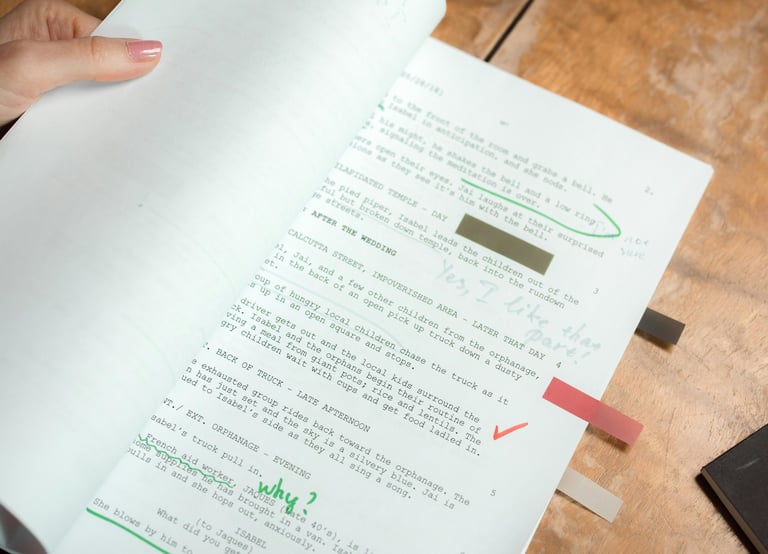 to the front of the room and grabs a bell. He
Isabel in anticipation, and she nods.
2.
his might, he shakes the bell and a low ring
signaling the meditation is over.
open their eyes. Jai laughs at their surprised
as they see it's him with the bell.
TEMPLE - DAY
3
pied piper, Isabel leads the children out of the
but broken down temple, back into the rundown
streets.
AFTER THE WEDDING
Yes, I like that
part!
CALCUTTA STREET, IMPOVERISHED AREA - LATER THAT DAY
4
Jai, and a few other children from the orphanage,
in the back of an open pick up truck down a dusty
of hungry local children chase the truck as it
up in an open square and stops.
driver gets out and the local kids surround the
Isabel and the orphans begin their routine of
a meal from giant pots; rice and lentils. The
children wait with cups and get food ladled in.
BACK OF TRUCK - LATE AFTERNOON
exhausted group rides back toward the orphanage. The
has just set and the sky is a silvery blue. Jai is
to Isabel's side as they all sing a song.
EXT. ORPHANAGE - EVENING
5
truck pull in.
why?
French aid worker, JAQUES (late 40's), is
supplies he has brought in a van.
in and she hops out, anxiously.
ISABEL
(to Jaques)
What did you
She blows by him to